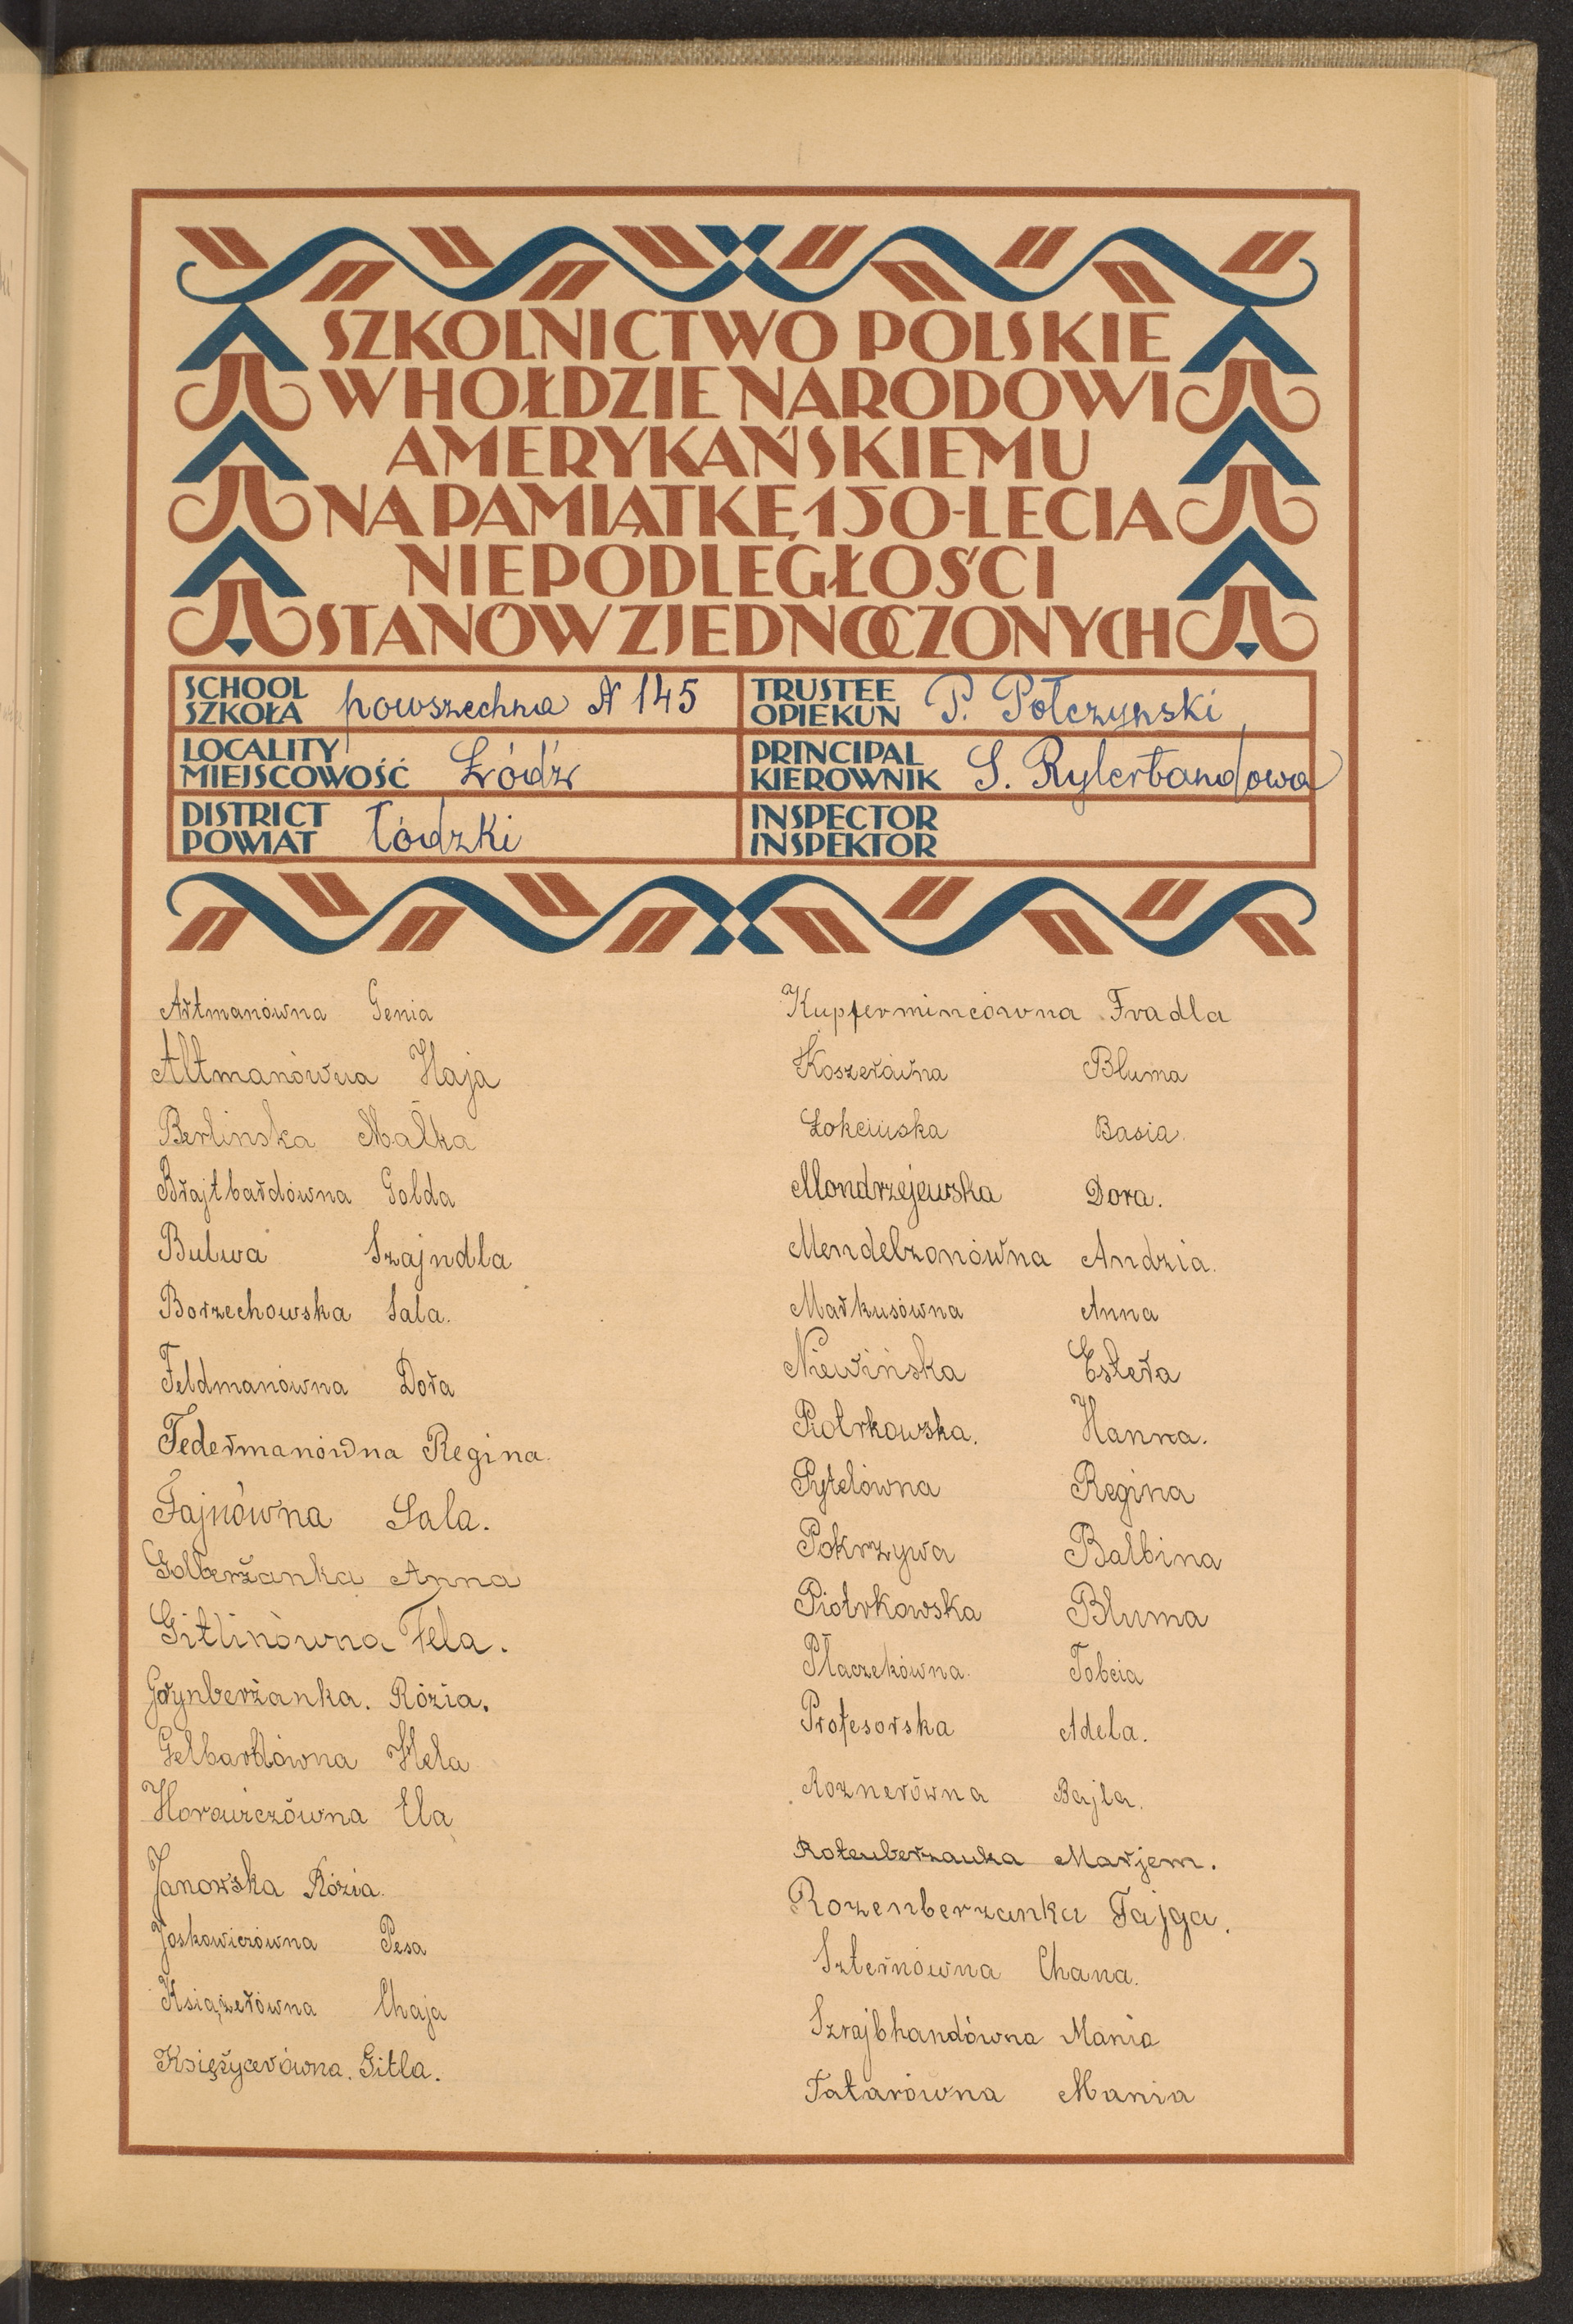 SZKOLNICTWO POLSKIE
W HOŁDZIE NARODOWI
AMERYKAŃSKIEMU
NA PAMIĄTKĘ 150-LECIA
NIEPODLEGŁOŚCI
STANÓW ZJEDNOCZONYCH
SCHOOL
SZKOŁA powszechna N 145
TRUSTEE
OPIEKUN P. Połczynski
LOCALITY
MIEJSCOWOŚĆ Łódź
PRINCIPAL
KIEROWNIK S. Rylerbandowa
DISTRICT
POWIAT Łódzki
INSPECTOR
INSPEKTOR
Artmanówna Genia
Altmanówna Haja
Berlinska Małka
Brajtbardówna Golda
Bulwa Szajndla
Borzechowska Sala.
Feldmanówna Dora
Federmanówna Regina.
Fajnówna Sala.
Golberżanka Anna
Gitlinówna Fela.
Grynberżanka. Rózia.
Gelbardówna Hela
Horowiczówna Ela
Janowska Rózia.
Joskowiczówna Pesa
Książerówna Chaja
Księżycerówna. Gitla.
Kupfermincówna Fradla
Koszerówna Bluma
Łokcińska Basia.
Mondrzejewska Dora.
Mendelzonówna Andzia.
Markusówna Anna
Niewińska Estera
Piotrkowska. Hanna.
Pytelówna Regina
Pokrzywa Balbina
Piotrkowska Bluma
Płaczekówna. Tobcia
Profesorska Adela.
Roznerówna Bajla.
Rotenberzanka Marjem.
Rozenberzanka Fajga.
Szternówna Chana.
Szrajbhandówna Mania
Tatarówna Mania